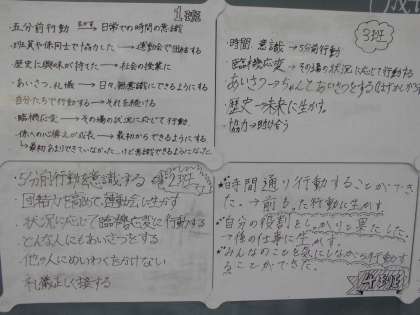 1班
・五分前行動 → 日常での時間の意識
・班員や係同士で協力した → 運動会で団結する
・歴史に興味が持てた → 社会の授業に
・あいさつ、礼儀 → 日々、無意識にできるようにする
・自分たちで行動する → それを続ける
・臨機応変 → その場の状況に応じて行動
→ 最初からできるようにする
3班
・時間 意識 → 5分前行動
・臨機応変 → その場の状況に応じて行動する
・あいさつ → ちゃんとあいさつをする
・歴史 → 未来に生かす。
・協力 → 助け合う
・5分前行動を意識する
2班
・団結力を高めて運動会に生かす
・状況に応じて臨機応変に行動する
・どんな人にもあいさつをする
・他の人にめいわくをかけない
・礼儀正しく接する
・時間通り行動することができた。
→ 前もった行動に生かす
・自分の役割をしっかりと果たした
→ 係の仕事に生かす。
・みんなのことを気にしながら行動することができた。
4班